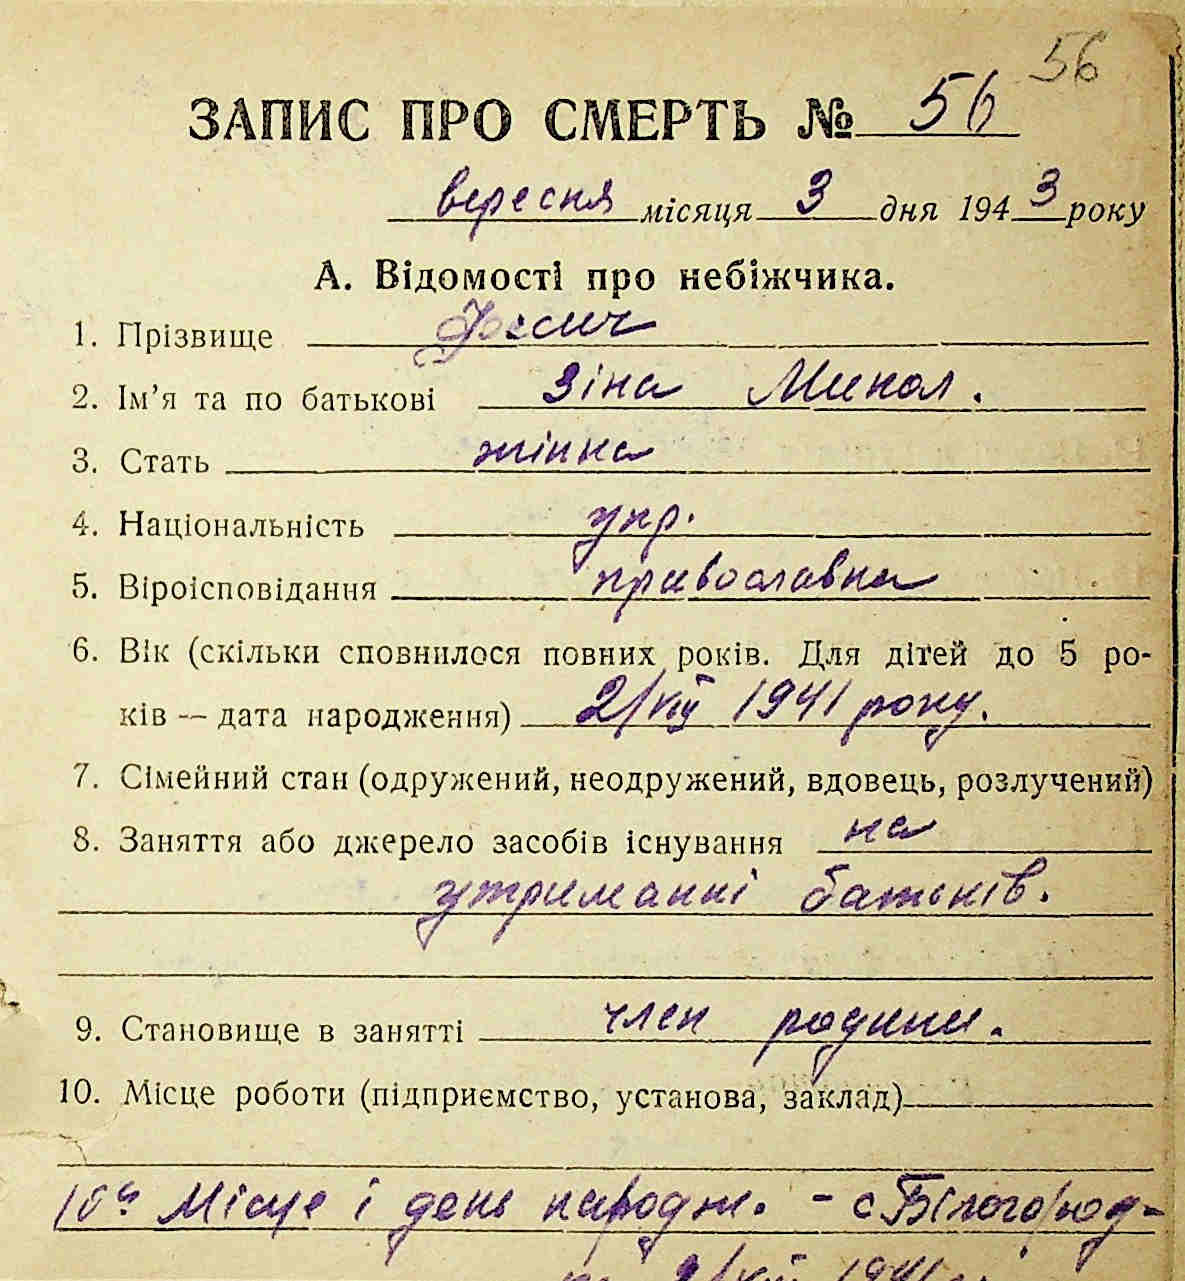 56
ЗАПИС ПРО СМЕРТЬ № 56
вересня місяця 3 дня 1943 року
А. Відомості про небіжчика.
1. Прізвище
2. Ім'я та по батькові Зіна Микол.
3. Стать жінка
4. Національність укр.
5. Віроісповідання православна
6. Вік (скільки сповнилося повних років. Для дітей до 5 ро-
ків — дата народження) 2/VIII 1941 року.
7. Сімейний стан (одружений, неодружений, вдовець, розлучений)
8. Заняття або джерело засобів існування на
утриманні батьків.
9. Становище в занятті член родини.
10. Місце роботи (підприємство, установа, заклад)
10а Місце і день народж. - с Білогород-
2/VIII 1941